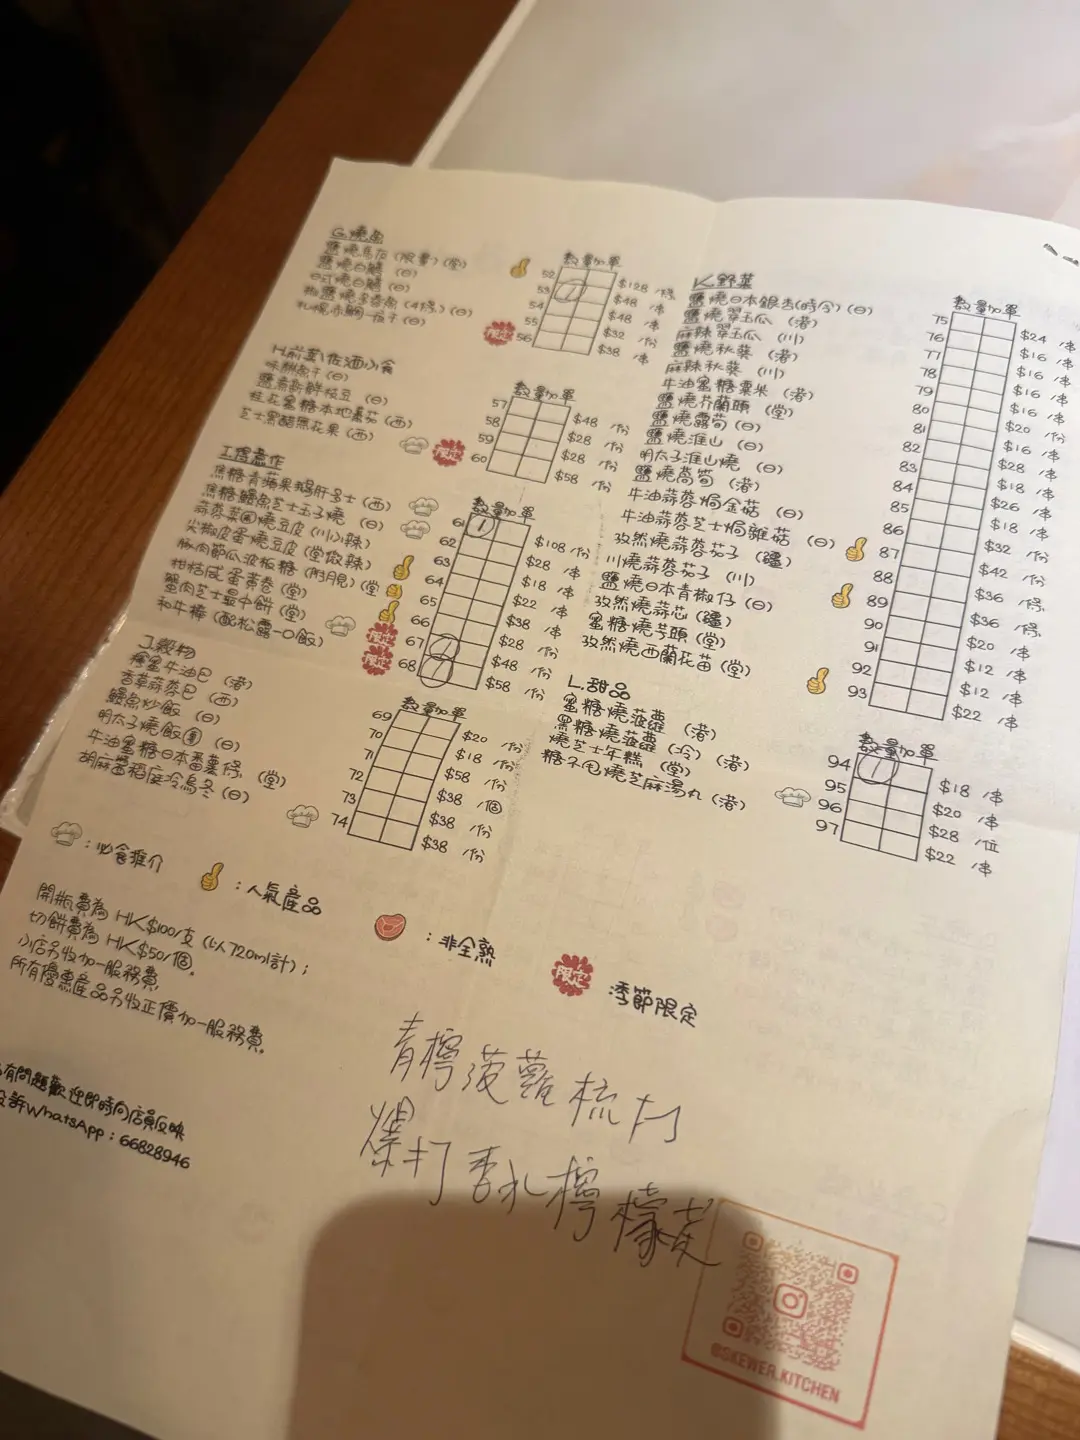 G.燒魚
鹽燒白鱔 (日)
日式燒白鱔 (日)
鹽燒多春魚 (4條) (日)
數量加單
52 $128 /條
53 1 $48 /串
54 $48 /串
55 $32 /份
限定 56 $38 /串
H.前菜/佐酒小食
鹽燒新鮮枝豆 (日)
桂花蜜糖本地番茄 (西)
芝士黑醋無花果 (西)
數量加單
57 $48 /份
58 $28 /份
59 $28 /份
限定 60 $58 /份
焦糖青蘋果鵝肝多士 (西)
焦糖鰻魚芝士玉子燒 (日)
燒豆皮 (川) (小辣)
尖椒皮蛋燒豆皮 (堂微辣)
柑桔咸蛋黃卷 (堂)
蟹肉芝士最中餅 (堂)
和牛棒 (配松露一口飯)
數量加單
61 1 $108 /份
62 $28 /串
63 $18 /串
64 $22 /串
65 $38 /串
66 $28 /份
限定 67 1 $48 /份
限定 68 1 $58 /份
J.穀物
牛油包 (港)
香草蒜蓉包 (西)
鰻魚炒飯 (日)
明太子燒飯團 (日)
牛油蜜糖日本番薯條 (堂)
胡麻醬稻庭冷烏冬 (日)
數量加單
69 $20 /份
70 $18 /份
71 $58 /份
72 $38 /個
73 $38 /份
74 $38 /份
K.野菜
鹽燒日本銀杏(時令) (日)
鹽燒翠玉瓜 (港)
麻辣翠玉瓜 (川)
鹽燒秋葵 (港)
麻辣秋葵 (川)
牛油蜜糖粟米 (港)
鹽燒芥蘭頭 (堂)
鹽燒露筍 (日)
鹽燒淮山 (日)
明太子淮山燒 (日)
鹽燒萵筍 (港)
牛油蒜蓉焗金菇 (日)
牛油蒜蓉芝士焗雜菇 (日)
孜然燒蒜蓉茄子 (疆)
川燒蒜蓉茄子 (川)
鹽燒日本青椒仔 (日)
孜然燒蒜芯 (疆)
蜜糖燒芋頭 (堂)
孜然燒西蘭花苗 (堂)
數量加單
75 $24 /串
76 $16 /串
77 $16 /串
78 $16 /串
79 $16 /串
80 $20 /份
81 $16 /串
82 $28 /串
83 $18 /串
84 $26 /串
85 $18 /串
86 $32 /份
87 $42 /份
88 $36 /條
89 $36 /條
90 $20 /串
91 $12 /串
92 $12 /串
93 $22 /串
L.甜品
蜜糖燒菠蘿 (港)
黑糖燒菠蘿 (冷) (港)
燒芝士年糕 (堂)
糖不甩燒芝麻湯丸 (港)
數量加單
94 1 $18 /串
95 $20 /串
96 $28 /位
97 $22 /串
：必食推介
：人氣產品
：非全熟
限定 季節限定
開瓶費為 HK$100/支 (以720ml計)；
切餅費為 HK$50/個。
小店另收加一服務費
所有優惠產品另收正價加一服務費。
有問題歡迎即時向店員反映
投訴WhatsApp：66828946
青檸菠蘿梳打
爆打香水檸檬茶
@SKEWER.KITCHEN